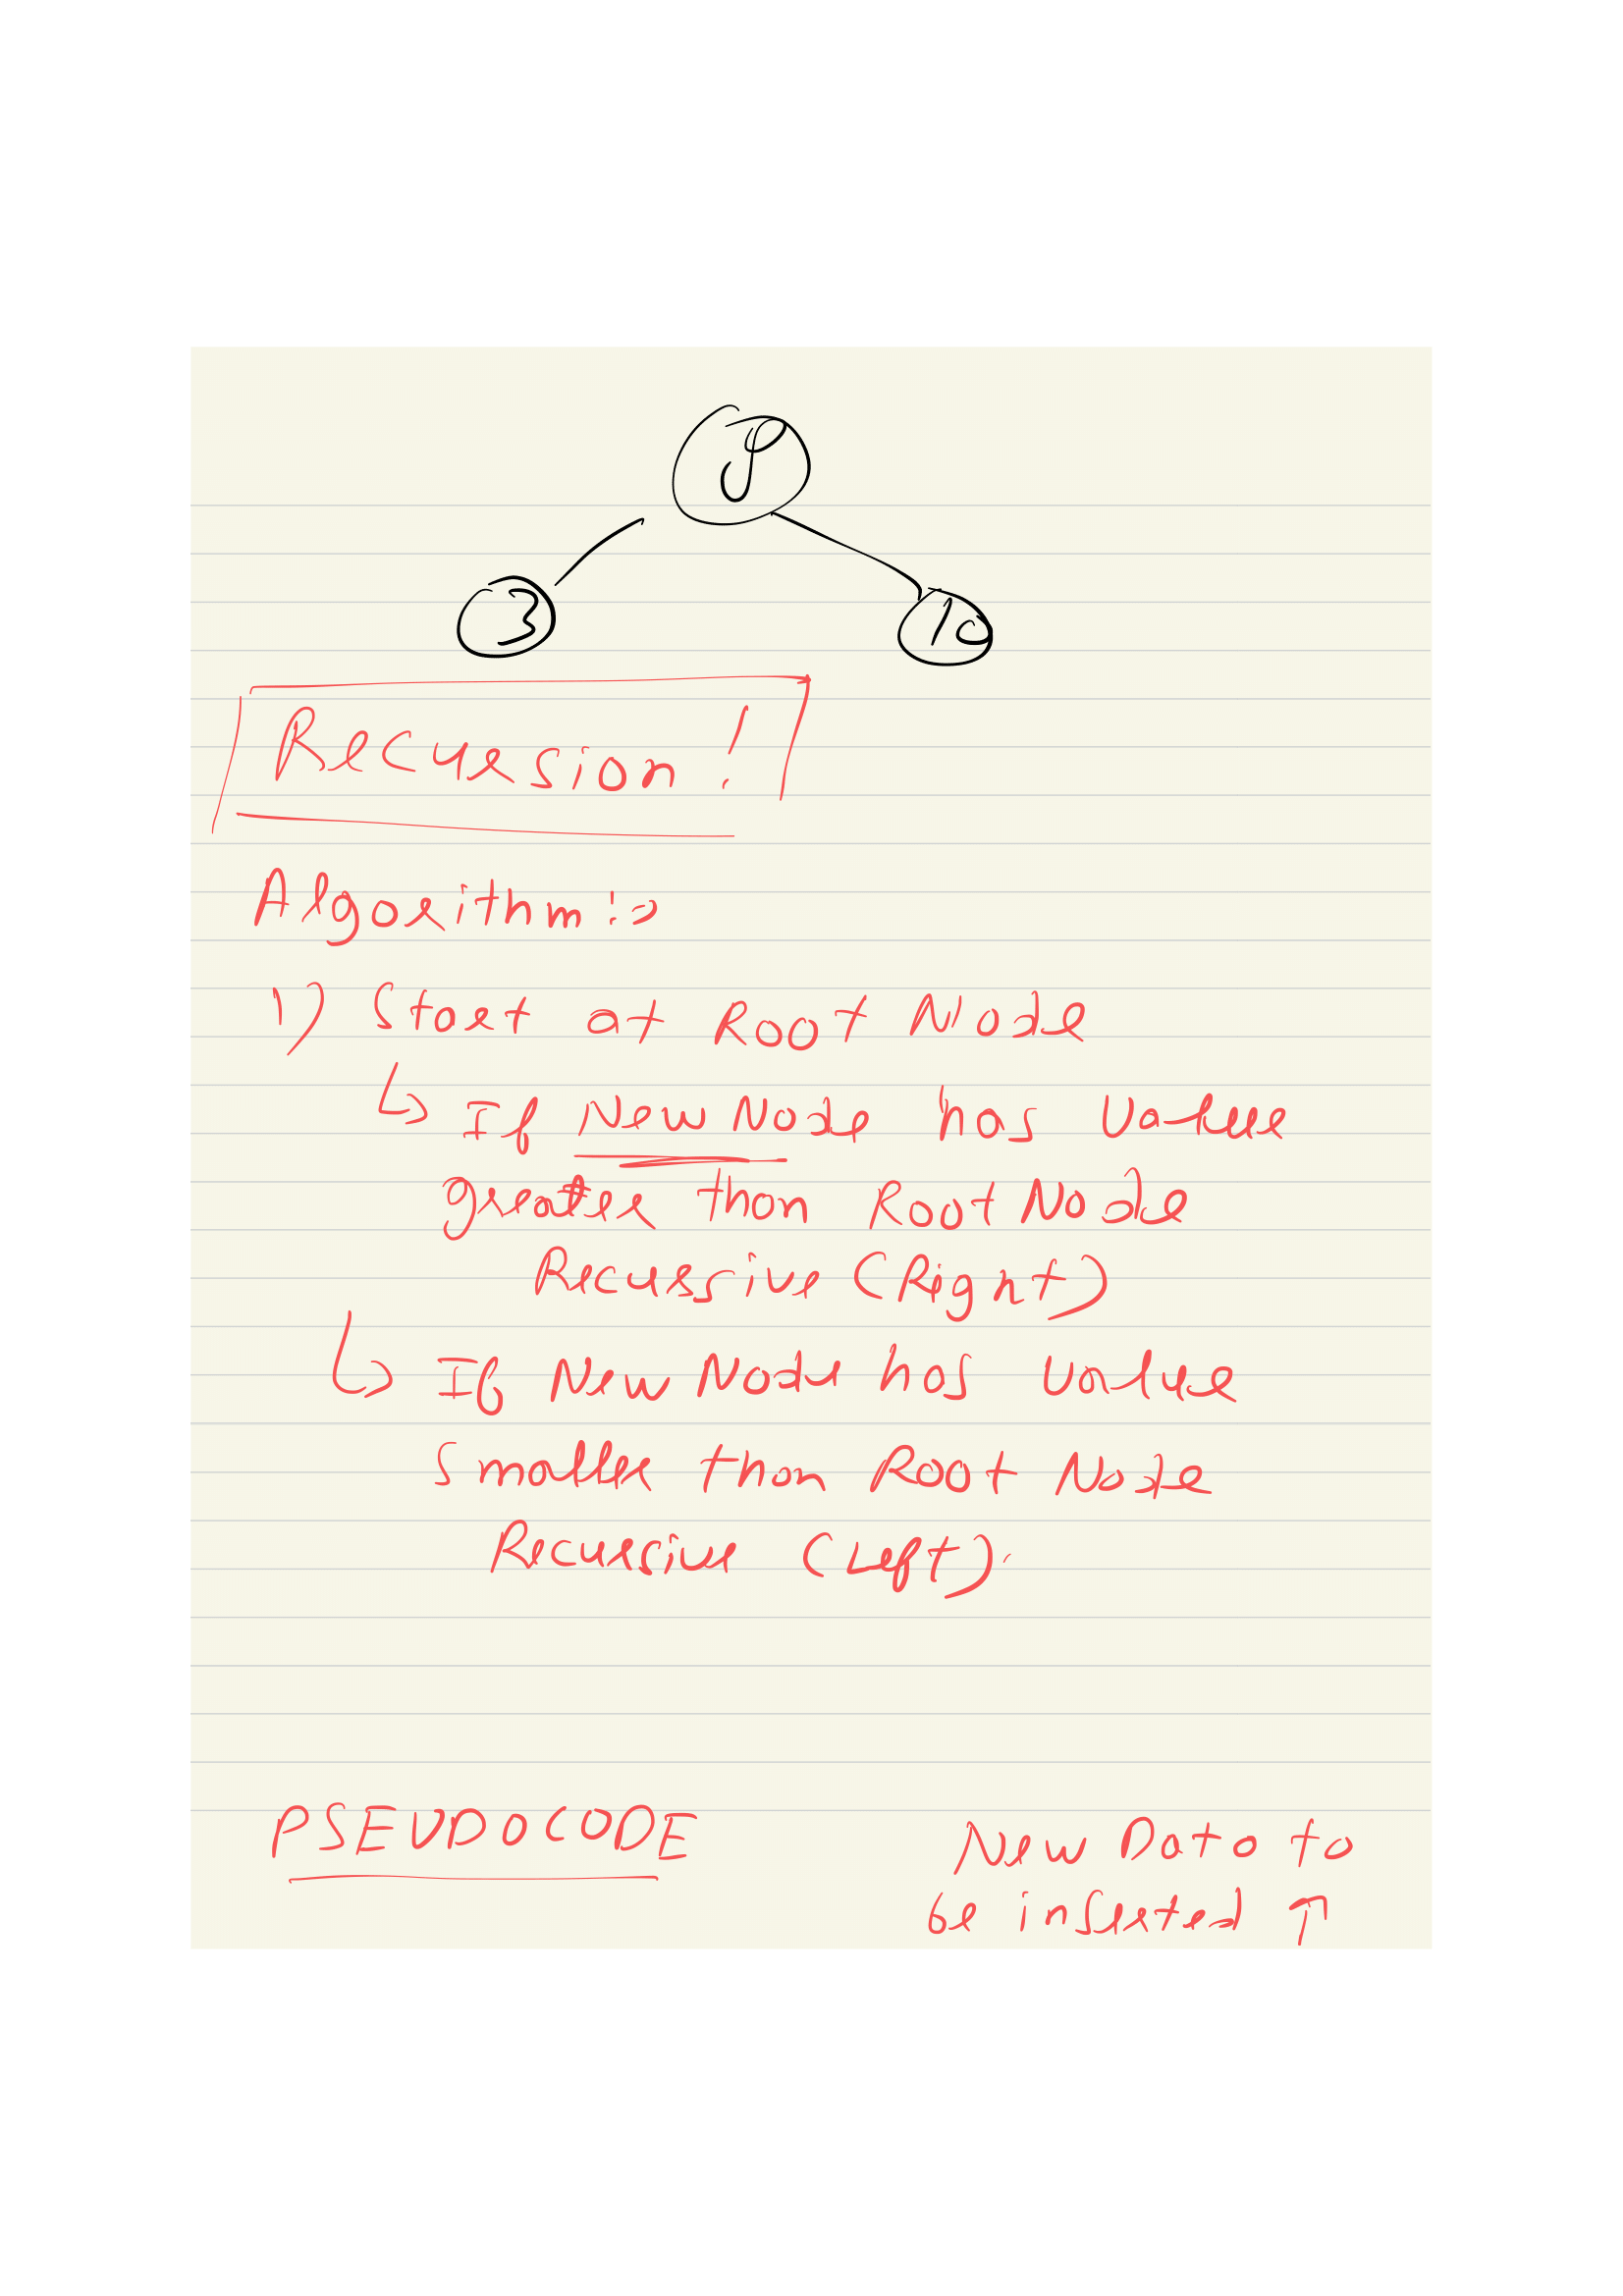 8
3
10
Recursion!
Algorithm:→
1) Start at Root Node
↳ If New Node has value
greater than Root Node
Recursive (Right)
↳ If New Node has value
smaller than Root Node
Recursive (Left).
PSEUDOCODE
New Data to
be inserted ↑